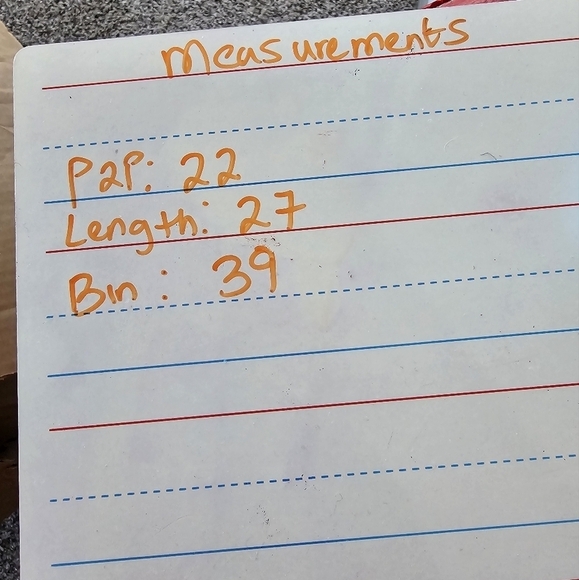 measurements
P2P: 22
Length: 27
Bin: 39